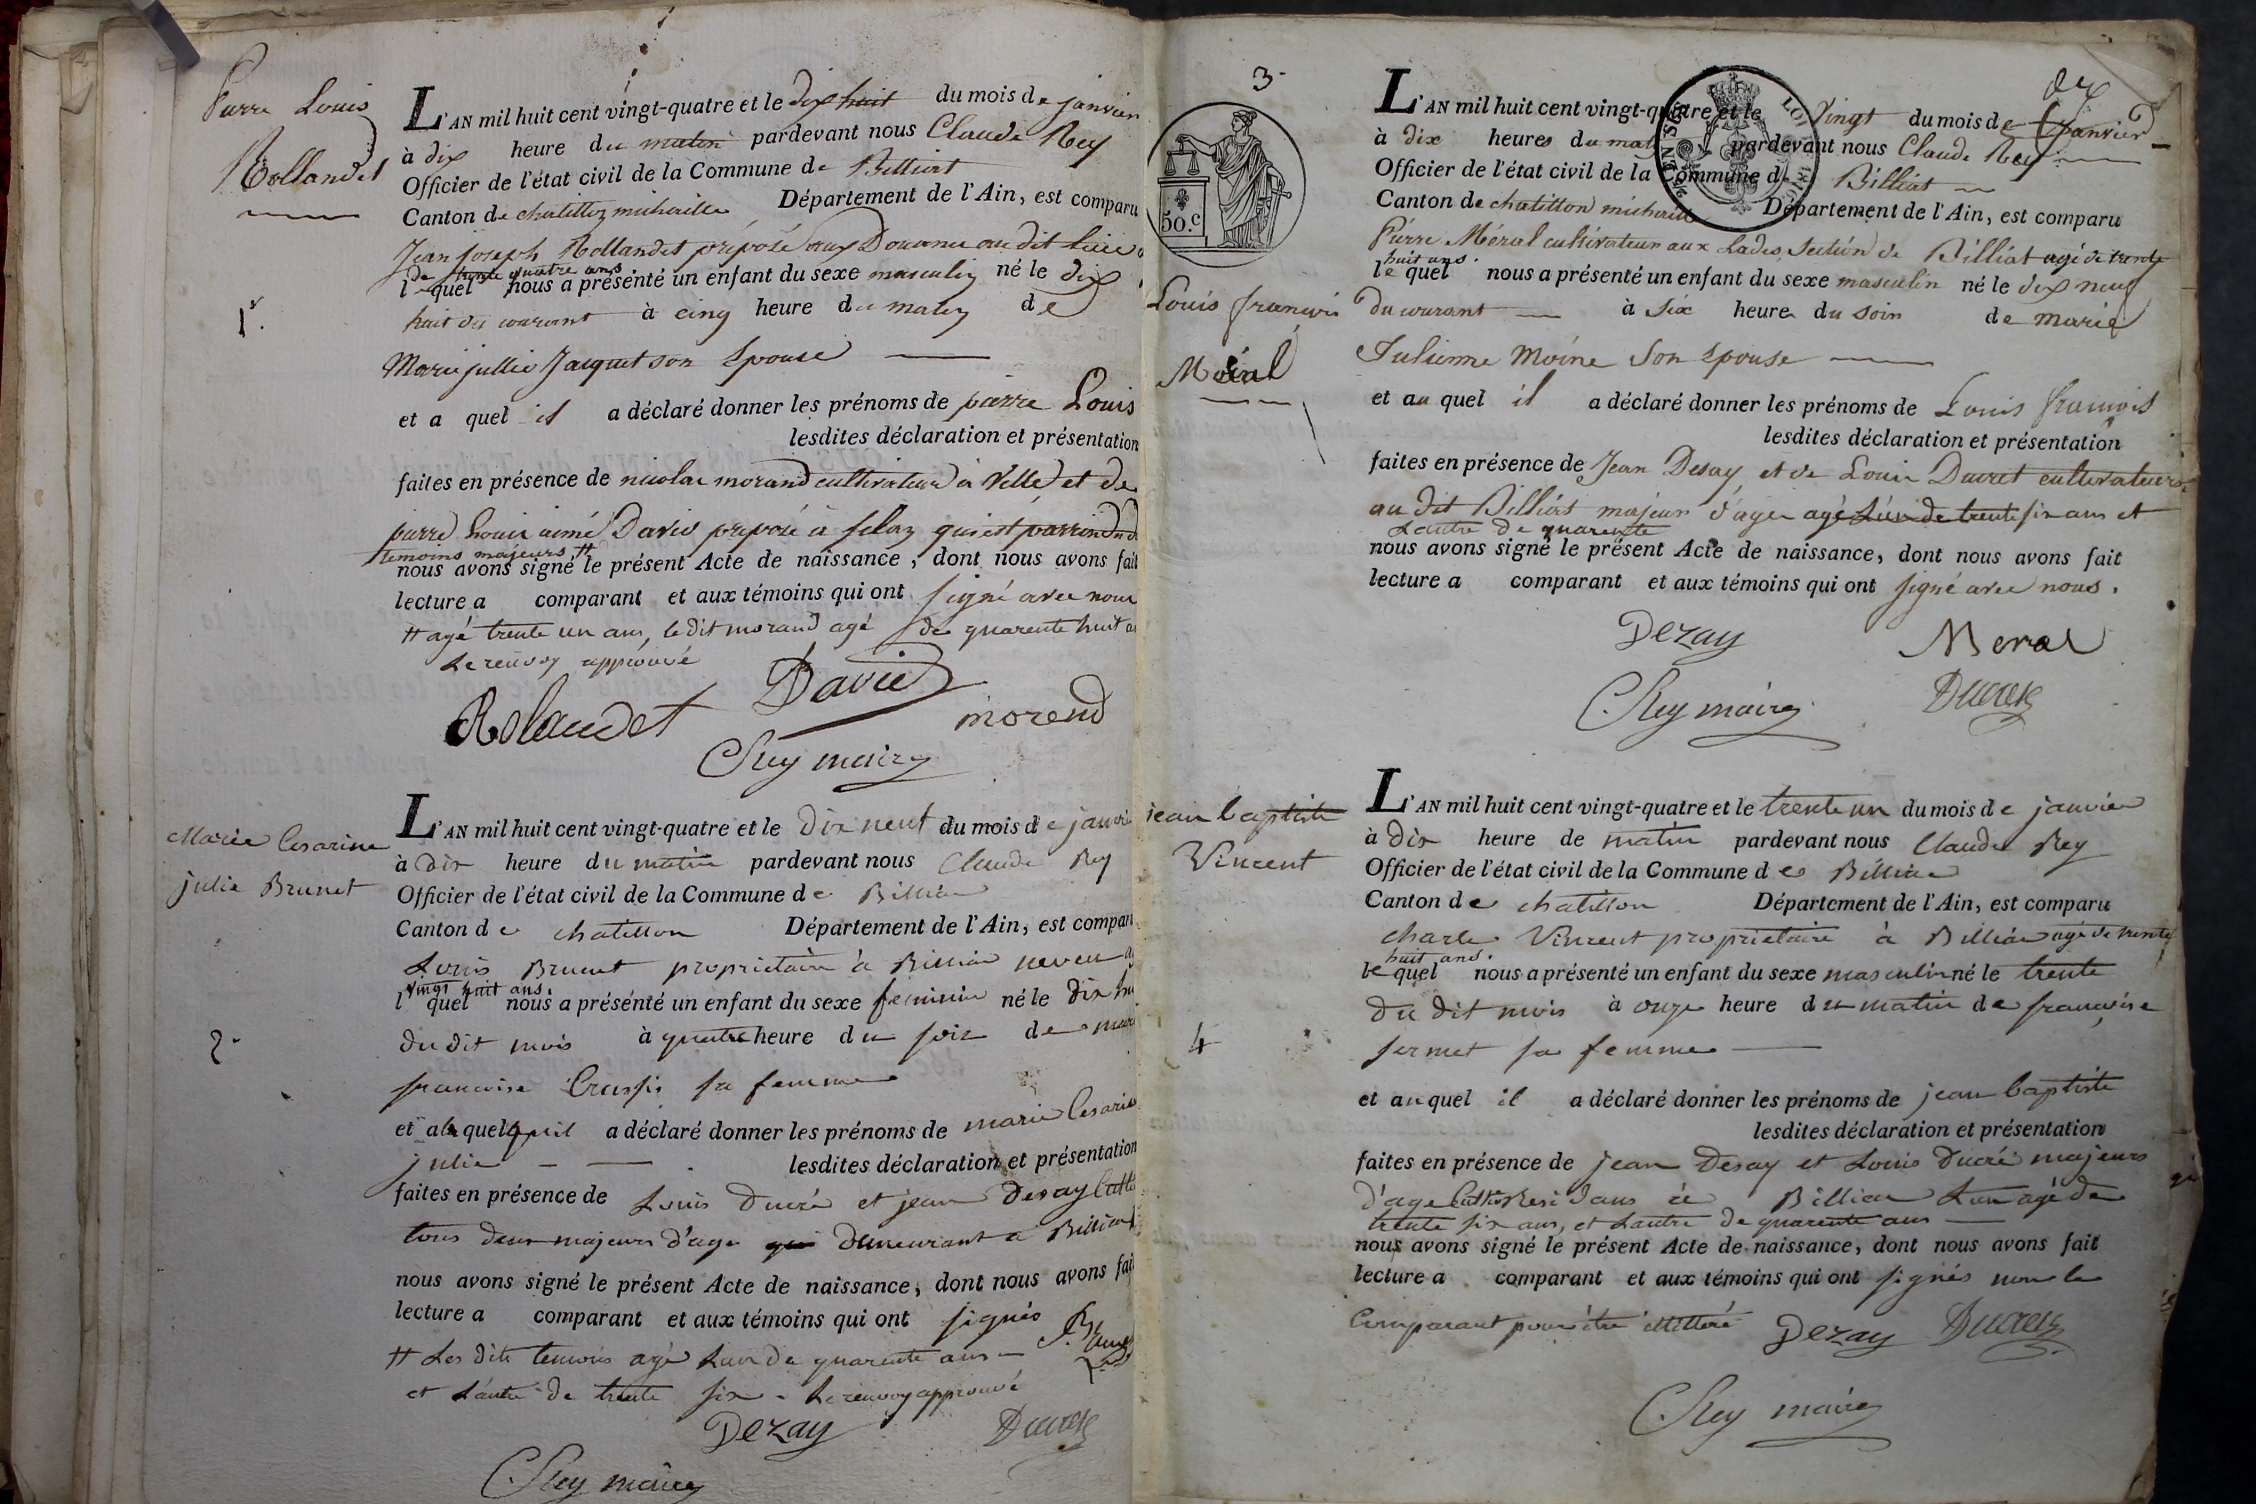 Pierre Louis
Rollandet
1r.
L'AN mil huit cent vingt-quatre et le dix huit du mois de janvier
à dix heure du matin pardevant nous Claude Rey
Officier de l'état civil de la Commune de Billiat
Canton de chatillon michaille Département de l'Ain, est comparu
Jean joseph Rollandet préposé aux Douanes au dit lieu
de trente quatre ans.
lequel nous a présenté un enfant du sexe masculin né le dix
huit du courant à cinq heure du matin de
Marie jullie Jacquet son Epouse
et a quel il a déclaré donner les prénoms de pierre Louis
lesdites déclaration et présentation
faites en présence de nicolas morand cultivateur à Ville et de
pierre Louis aimé David préposé à
témoins majeurs #
nous avons signé le présent Acte de naissance, dont nous avons fait
lecture a comparant et aux témoins qui ont signé avec nous
# agé trente un ans, le dit morand agé de quarente huit
Le renvoy approuvé
Rolandet David morend
C Rey maire
Marie Cesarine
julie Brunet
2.
L'AN mil huit cent vingt-quatre et le dix neuf du mois de janvi
à dix heure du matin pardevant nous Claude Rey
Officier de l'état civil de la Commune de Billia
Canton de chatillon Département de l'Ain, est compar
Louis Brunet proprietaire à Billia neveu
vingt huit ans.
l quel nous a présenté un enfant du sexe feminin né le dix hu
du dit mois à quatre heure du soir de mari
francoise sa femme
et a la quel quil a déclaré donner les prénoms de marie Cesarie
julie lesdites déclaration et présentation
faites en présence de Louis Ducré et jean Desay
tous deux majeurs d'age demeurant a Billia
nous avons signé le présent Acte de naissance, dont nous avons fai
lecture a comparant et aux témoins qui ont signés
# Les dits temoins agé Lun de quarente ans
et Lautre de trente six. Le renvoy approuvé
Dezay Ducret
C Rey maire
3.
50.c
Louis françois
Méral
L'AN mil huit cent vingt-quatre et le vingt du mois de janvier
à dix heures du matin pardevant nous Claude Rey
Officier de l'état civil de la Commune de Billiat
Canton de chatillon michaille Département de l'Ain, est comparu
Pierre Méral cultivateur aux Lades Section de Billiat agé de trente
huit ans.
le quel nous a présenté un enfant du sexe masculin né le dix neuf
du courant à six heure du soir de marie
Julienne Moine Son Epouse
et au quel il a déclaré donner les prénoms de Louis françois
lesdites déclaration et présentation
faites en présence de Jean Desay, et de Louis Ducret cultivateurs
au dit Billiat majeur d'ages agé L'un de trente six ans et
Lautre de quarente
nous avons signé le présent Acte de naissance, dont nous avons fait
lecture a comparant et aux témoins qui ont signé avec nous.
Dezay Meral
C Rey maire Ducret
jean baptiste
Vincent
4
L'AN mil huit cent vingt-quatre et le trente un du mois de janvier
à dix heure de matin pardevant nous Claude Rey
Officier de l'état civil de la Commune de Billia
Canton de chatillon Département de l'Ain, est comparu
charle Vincent proprietaire à Billia agé de trente
huit ans.
le quel nous a présenté un enfant du sexe masculin né le trente
du dit mois à onze heure du matin de françoise
sermet sa femme
et auquel il a déclaré donner les prénoms de jean baptiste
lesdites déclaration et présentation
faites en présence de jean Desay et Louis Ducré majeurs
d'age à Billia L'un agé de
trente six ans, et Lautre de quarente ans
nous avons signé le présent Acte de naissance, dont nous avons fait
lecture a comparant et aux témoins qui ont signés non le
Comparant pour être illitteré Dezay Ducret
C Rey maire